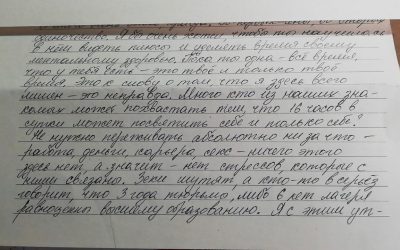 одиночество. Я бы очень хотел, чтобы ты научилась
в нём видеть плюсы и уделять время своему
ментальному здоровью. Пока ты одна – всё время,
что у тебя есть – это твоё и только твоё
время. Это к слову о том что я здесь всего
лишен – это неправда. Много кто из наших зна-
комых может похвастать тем, что 16 часов в
сутки может посветить себе и только себе?
Не нужно переживать абсолютно ни за что –
работа, деньги, карьера, секс – ничего этого
здесь нет, а значит – нет стрессов, которые с
ними связаны. Зеки шутят, а кто-то всерьёз
говорит, что 3 года тюрьмы, либо 6 лет лагеря
равноценны высшему образованию. Я с этим ут-